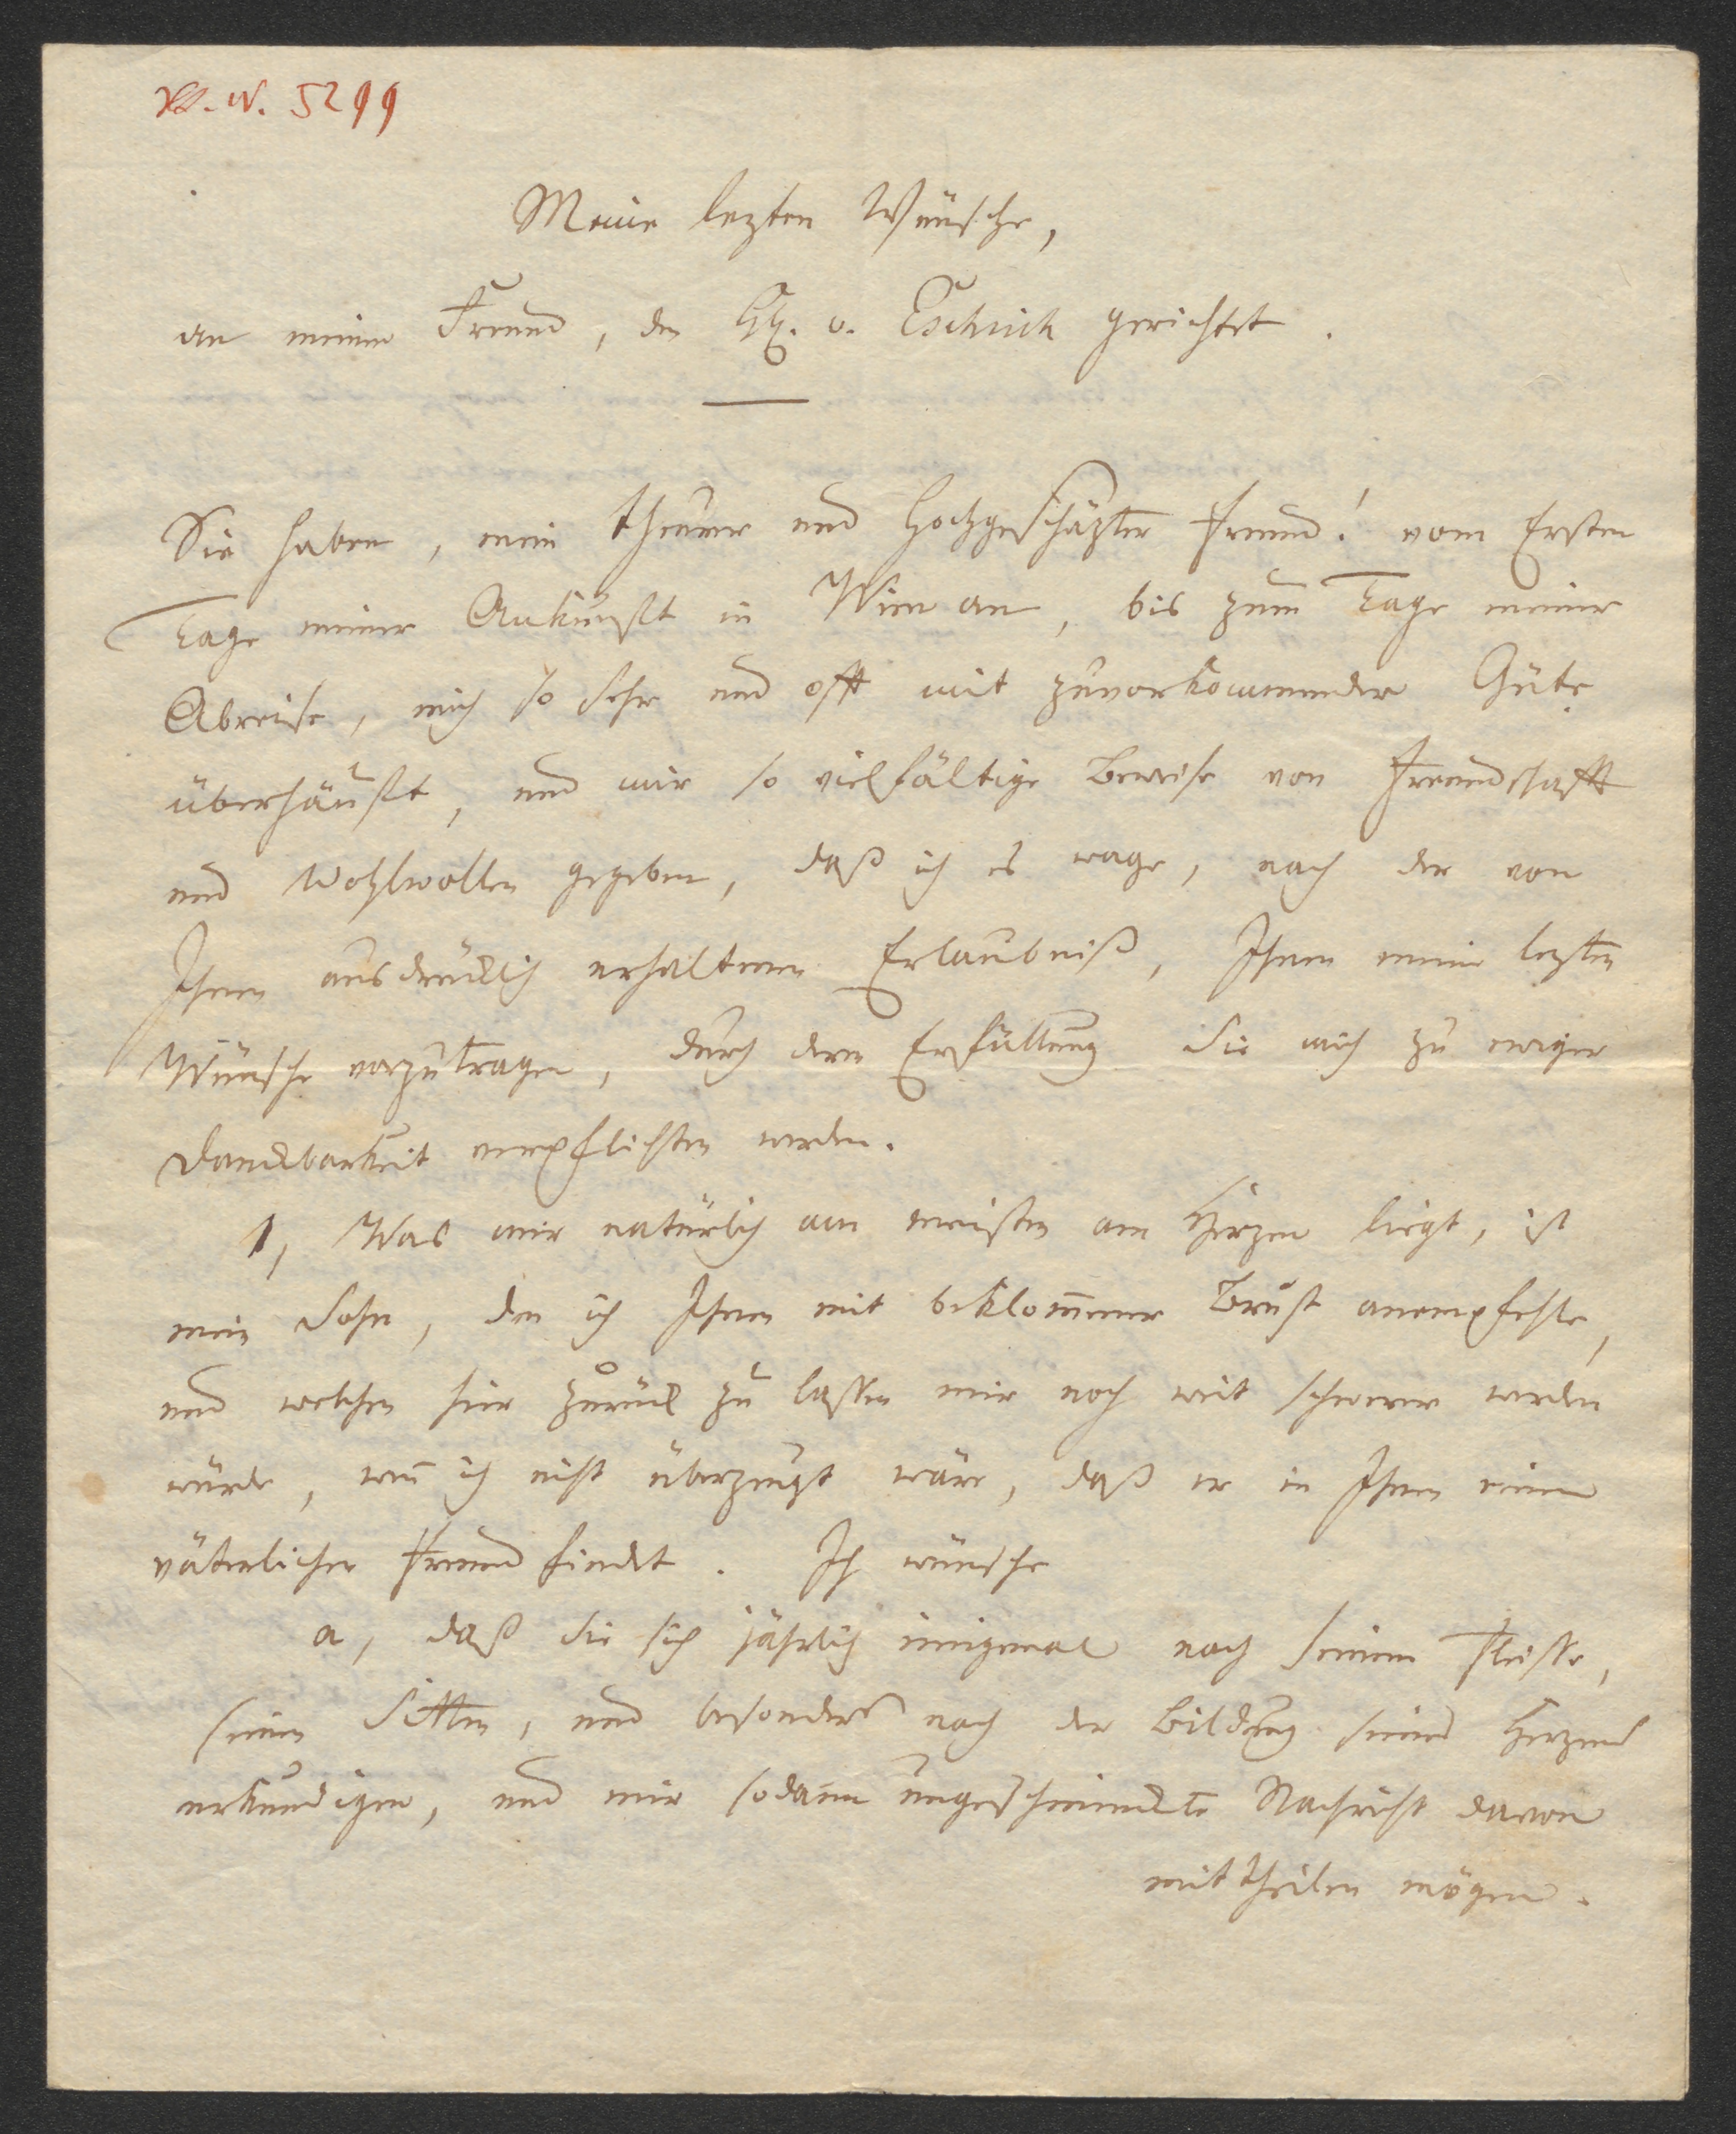 N. 5299
Meine lezten Wünsche,
an meinen Freund, den H. v. Eschrich gerichtet.
Sie haben, mein theurer und Hochgeschäzter Freund! vom Ersten
Tage meiner Ankunfft in Wien an, bis zum Tage meiner
Abreise, mich so sehr und offt mit zuvorkommender Güte
überhäufft, und mir so vielfältige Beweise von Freundschafft
und Wohlwollen gegeben, daß ich es wage, nach der von
Ihnen ausdrüklich erhaltenen Erlaubniß, Ihnen meine lezten
Wünsche vorzutragen, durch deren Erfüllung Sie mich zu ewiger
Dankbarkeit verpflichten werden.
1, Was mir natürlich am meisten am Herzen liegt, ist
mein Sohn, den ich Ihnen mit beklom̄ener Brust anempfehle,
und welchen hier zurük zu lassen mir noch weit schwerer werden
würde, wen̄ ich nicht überzeugt wäre, daß er in Ihnen einen
väterlichen Freund findet. Ich wünsche
a, daß Sie sich jährlich einigemal nach seinem Fleisse,
seinen Sitten, und besonders nach der Bildung seines Herzens
erkundigen, und mir sodann ungeschminkte Nachricht davon
mittheilen mögen.